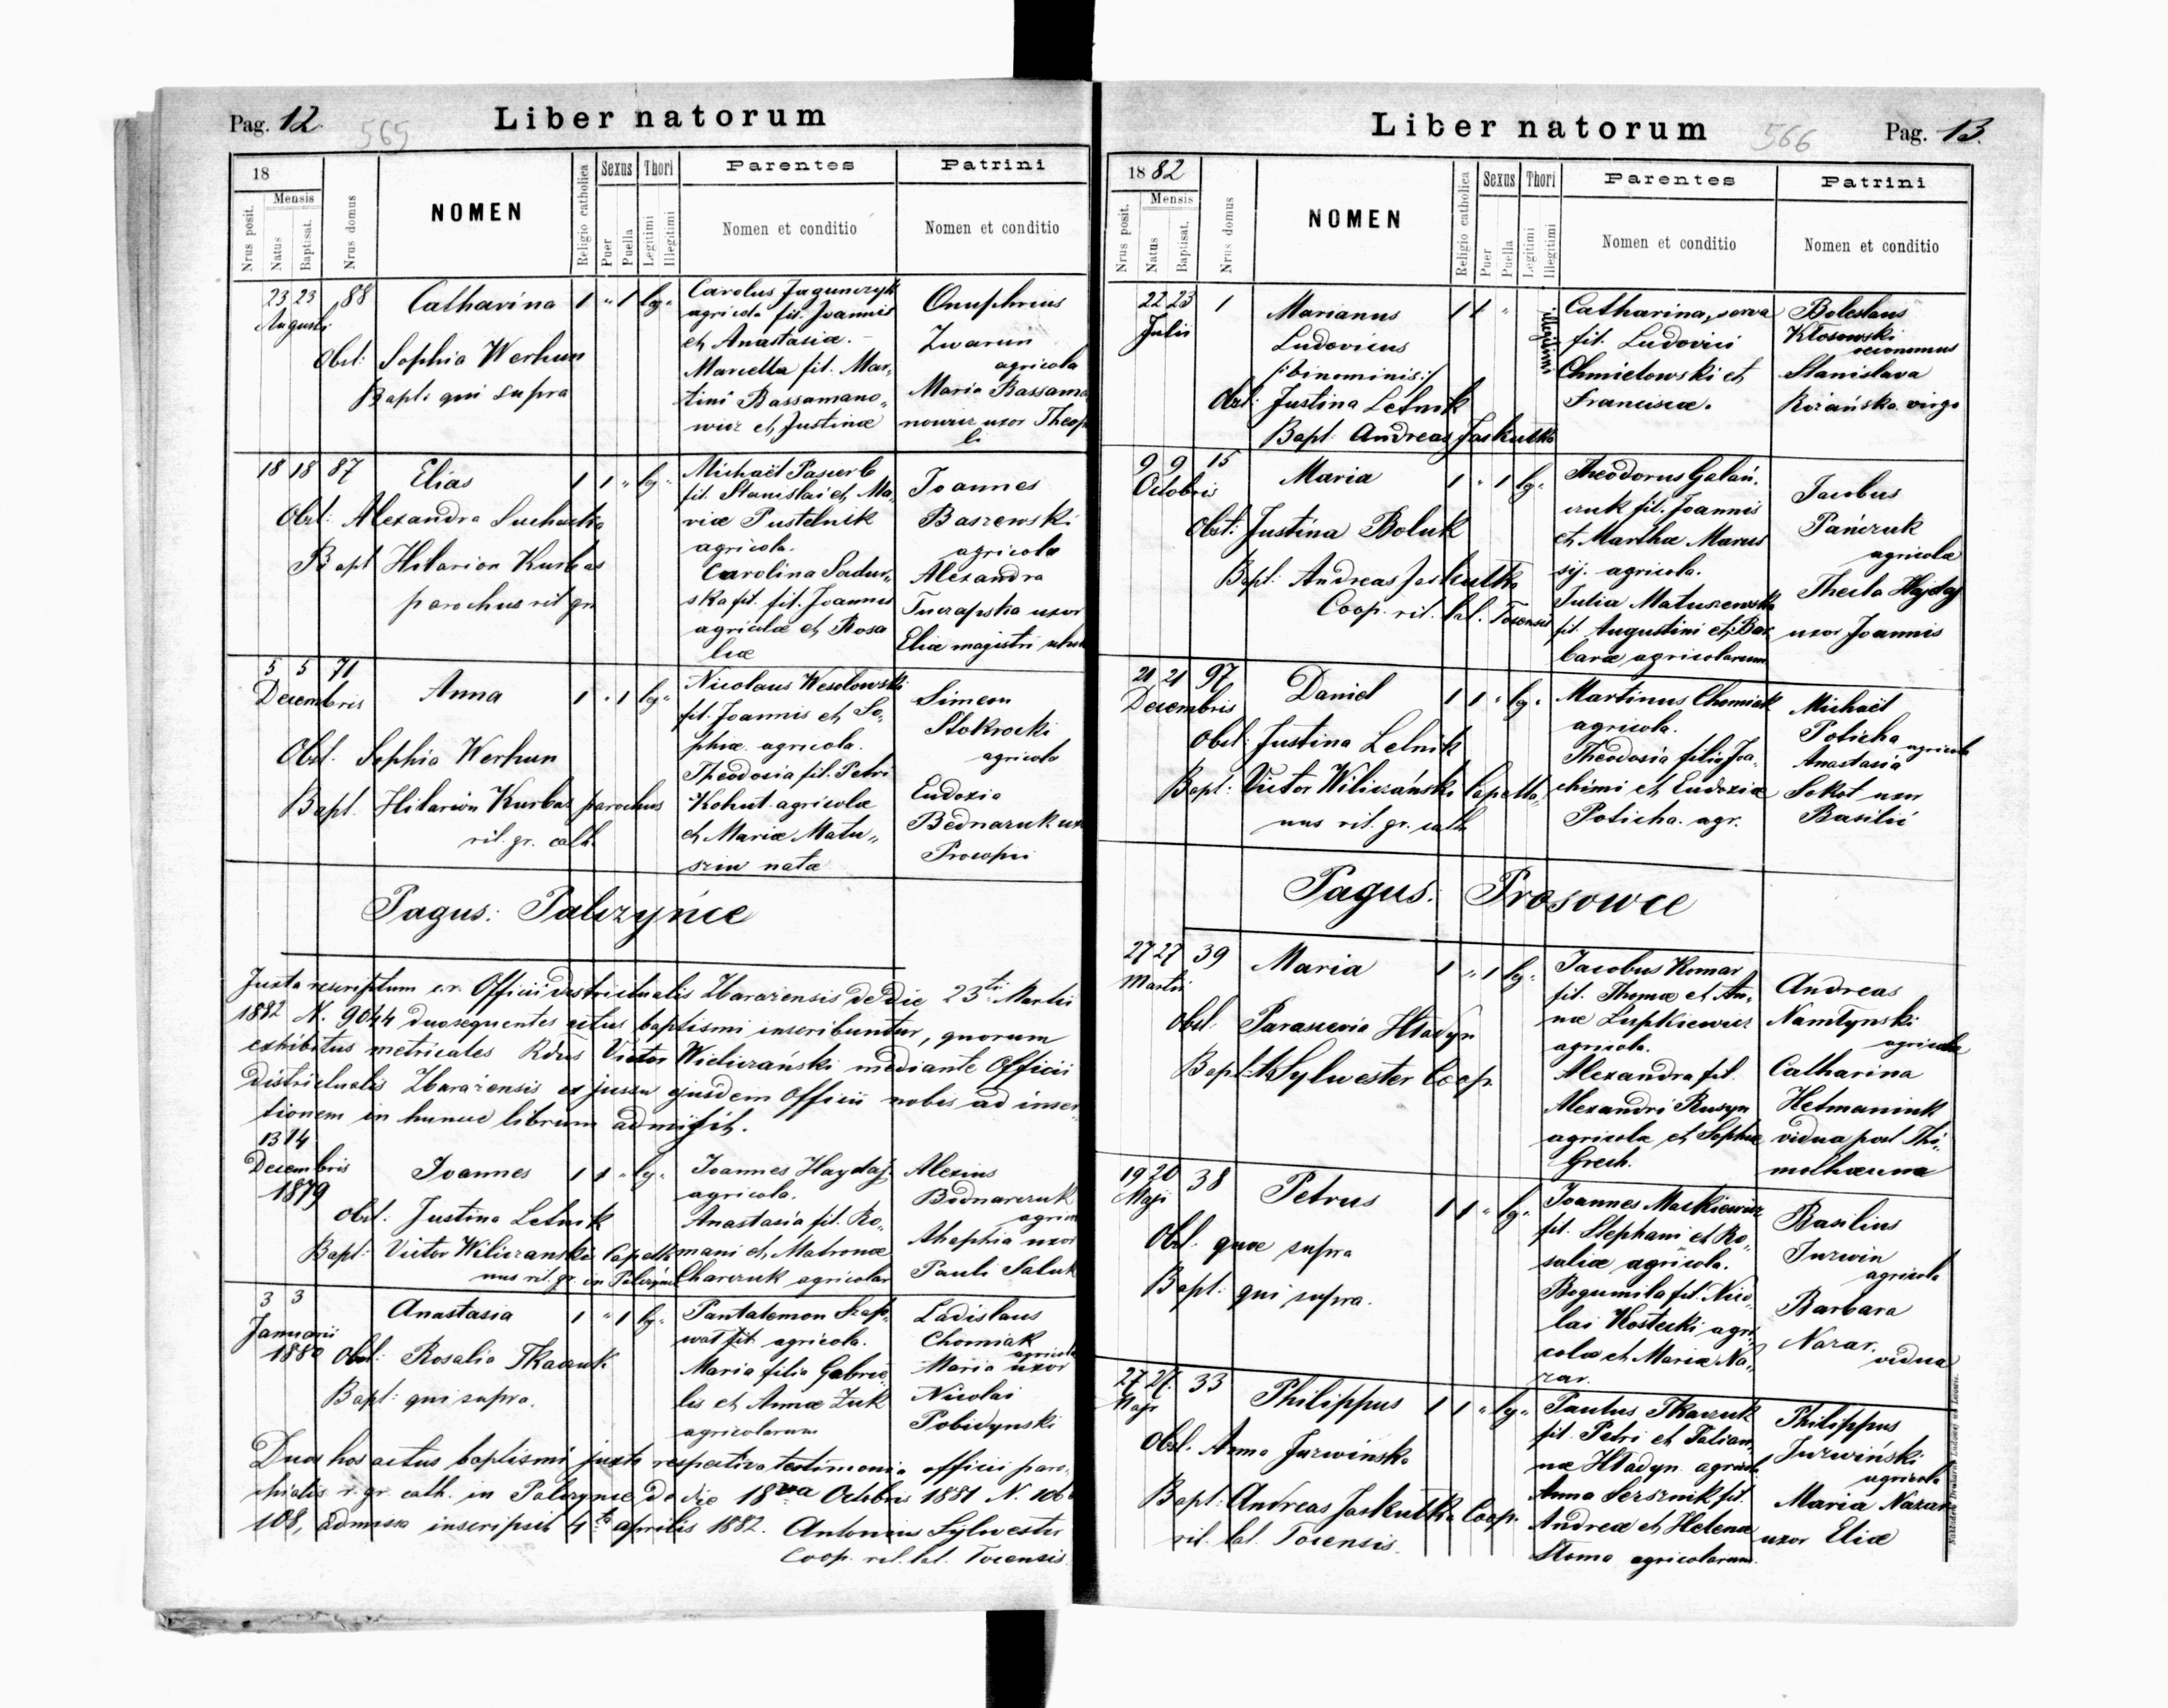 Pag. 12.
565
Liber natorum
18
Nrus posit.
Mensis
Natus
Baptisat.
Nrus domus
NOMEN
Religio catholica
Sexus
Puer
Puella
Thori
Legitimi
Illegitimi
Parentes
Nomen et conditio
Patrini
Nomen et conditio
23 23 88 Catharina 1 " 1 leg.
Augusti
Obst: Sophia Werhun
Bapt: qui supra
Carolus Jagunczyk
agricola fil. Joannis
et Anastasiæ. -
Marcella fil. Mar„
tini Bassamano„
wicz et Justinæ
Onuphrius
Zwarun
agricola
Maria Bassama
nowicz uxor Theop
li
18 18 87 Elias 1 1 " leg.
Obst: Alexandra Suchecka
Bapt Hilarion Kurbas
parochus rit gr.
Michaël Pasierb
fil. Stanislai et Ma„
riæ Pustelnik
agricola.
Carolina Sadur„
ska fil. fil. Joannis
agricolæ et Rosa
liæ
Joannes
Baszewski
agricola
Alexandra
Tuczapska uxor
Eliæ magistri
5 5 71 Anna 1 " 1 leg.
Decembris
Obst. Sophia Werhun
Bapt. Hilarion Kurbas parochus
rit. gr. cath.
Nicolaus Wesolowski
fil. Joannis et So„
phiæ. agricola.
Theodosia fil. Petri
Kohut agricolæ
et Mariæ Matu„
sziw natæ
Simeon
Stokrocki
agricola
Eudoxia
Bednaruk uxor
Procopii
Pagus: Palczyńce
Juxta rescriptum c.r. Officii districtualis Zbarażensis de die 23tii Martii
1882 N. 9044 duo sequentes actus baptismi inscribuntur, quorum
exhibitus metricales Rdus Victor Wieliczański mediante Officii
districtualis Zbarażensis ex jussu ejusdem Officii nobis ad inser„
tionem in hunce librum admisit.
13 14
Decembris Joannes 1 1 " leg.
1879
Obst: Justina Letnik
Bapt: Victor Wiliczanski Capella
nus rit. gr. in Palczynce
Joannes Haydaj
agricola.
Anastasia fil. Ro„
mani et Matronæ
Charczuk agricolar
Alexius
Bodnarczuk
agricola
Ahaphia uxor
Pauli Saluk
3 3 Anastasia 1 " 1 leg.
Januarii
1880 Obst: Rosalia Tkaczuk
Bapt: qui supra.
Pantalemon Szap„
wat fil. agricola.
Maria filia Gabrie„
lis et Annæ Zuk
agricolarum
Ladislaus
Chomiak
agricola
Maria uxor
Nicolai
Pobidynski
Duos hos actus baptismi juxta respectiva testimonia officii paro„
chialis r. gr. cath. in Palczynce de die 18va Octobris 1881 N. 106
108, admissa inscripsit 4ta aprilis 1882. Antonius Sylwester
Coop. rit. lat. Tocensis
Liber natorum
566
Pag. 13.
1882
Nrus posit.
Mensis
Natus
Baptisat.
Nrus domus
NOMEN
Religio catholica
Sexus
Puer
Puella
Thori
Legitimi
Illegitimi
Parentes
Nomen et conditio
Patrini
Nomen et conditio
22 23 1 Marianus 1 1 " illegitimi
Julii
Ludovicus
/:binominis:/
Obst: Justina Letnik
Bapt: Andreas Jaskulka
Catharina, serva
fil. Ludovici
Chmielowski et
Franciscæ.
Boleslaus
Kłosowski
oeconomus
Stanislava
Rożańska virgo
9 9 15 Maria 1 " 1 leg.
Octobris
Obst: Justina Boluk
Bapt: Andreas Jaskulka
Coop. rit. lat. Tocensis
Theodorus Galań„
czuk fil. Joannis
et Marthæ Marus
sij. agricola.
Julia Matuszewska
fil. Augustini et Bar
baræ agricolarum
Jacobus
Pańczuk
agricola
Thecla Hajdaj
uxor Joannis
21 21 97 Daniel 1 1 " leg.
Decembris
Obst: Justina Letnik
Bapt: Victor Wiliczański Capella„
nus rit. gr. cath.
Martinus Chomiak
agricola.
Theodosia filia Joa„
chimi et Eudoxiæ
Poticha. agr.
Michaël
Poticha
agricola
Anastasia
Sokot uxor
Basilii
Pagus: Prosowce
27 27 39 Maria 1 " 1 leg.
Martii
Obst. Parascevia Hładyn
Bapt: A Sylwester Coop.
Jacobus Komar
fil. Thomæ et An„
næ Lupkiewicz
agricola.
Alexandra fil.
Alexandri Rusyn
agricolæ et Sophiæ
Grech.
Andreas
Namtynski
agricola
Catharina
Hetmaniuk
vidua post Thi„
motheum
19 20 38 Petrus 1 1 " leg.
Maji
Obst: quæ supra
Bapt: qui supra.
Joannes Mackiewicz
fil. Stephani et Ro„
saliæ agricola.
Bogumila fil. Nico„
lai Kostecki agri„
colæ et Mariæ Na„
zar.
Basilius
Jurwin
agricola
Barbara
Nazar.
vidua
27 27. 33 Philippus 1 1 " leg.
Maji
Obst. Anna Jurwińska
Bapt: Andreas Jaskulka Coop.
rit. lat. Tocensis
Paulus Tkaczuk
fil. Petri et Tatian„
næ Hładyn agricola
Anna Serznik fil.
Andreæ et Helenæ
Stoma agricolarum.
Philippus
Jurwiński
agricola
Maria Nazar
uxor Eliæ